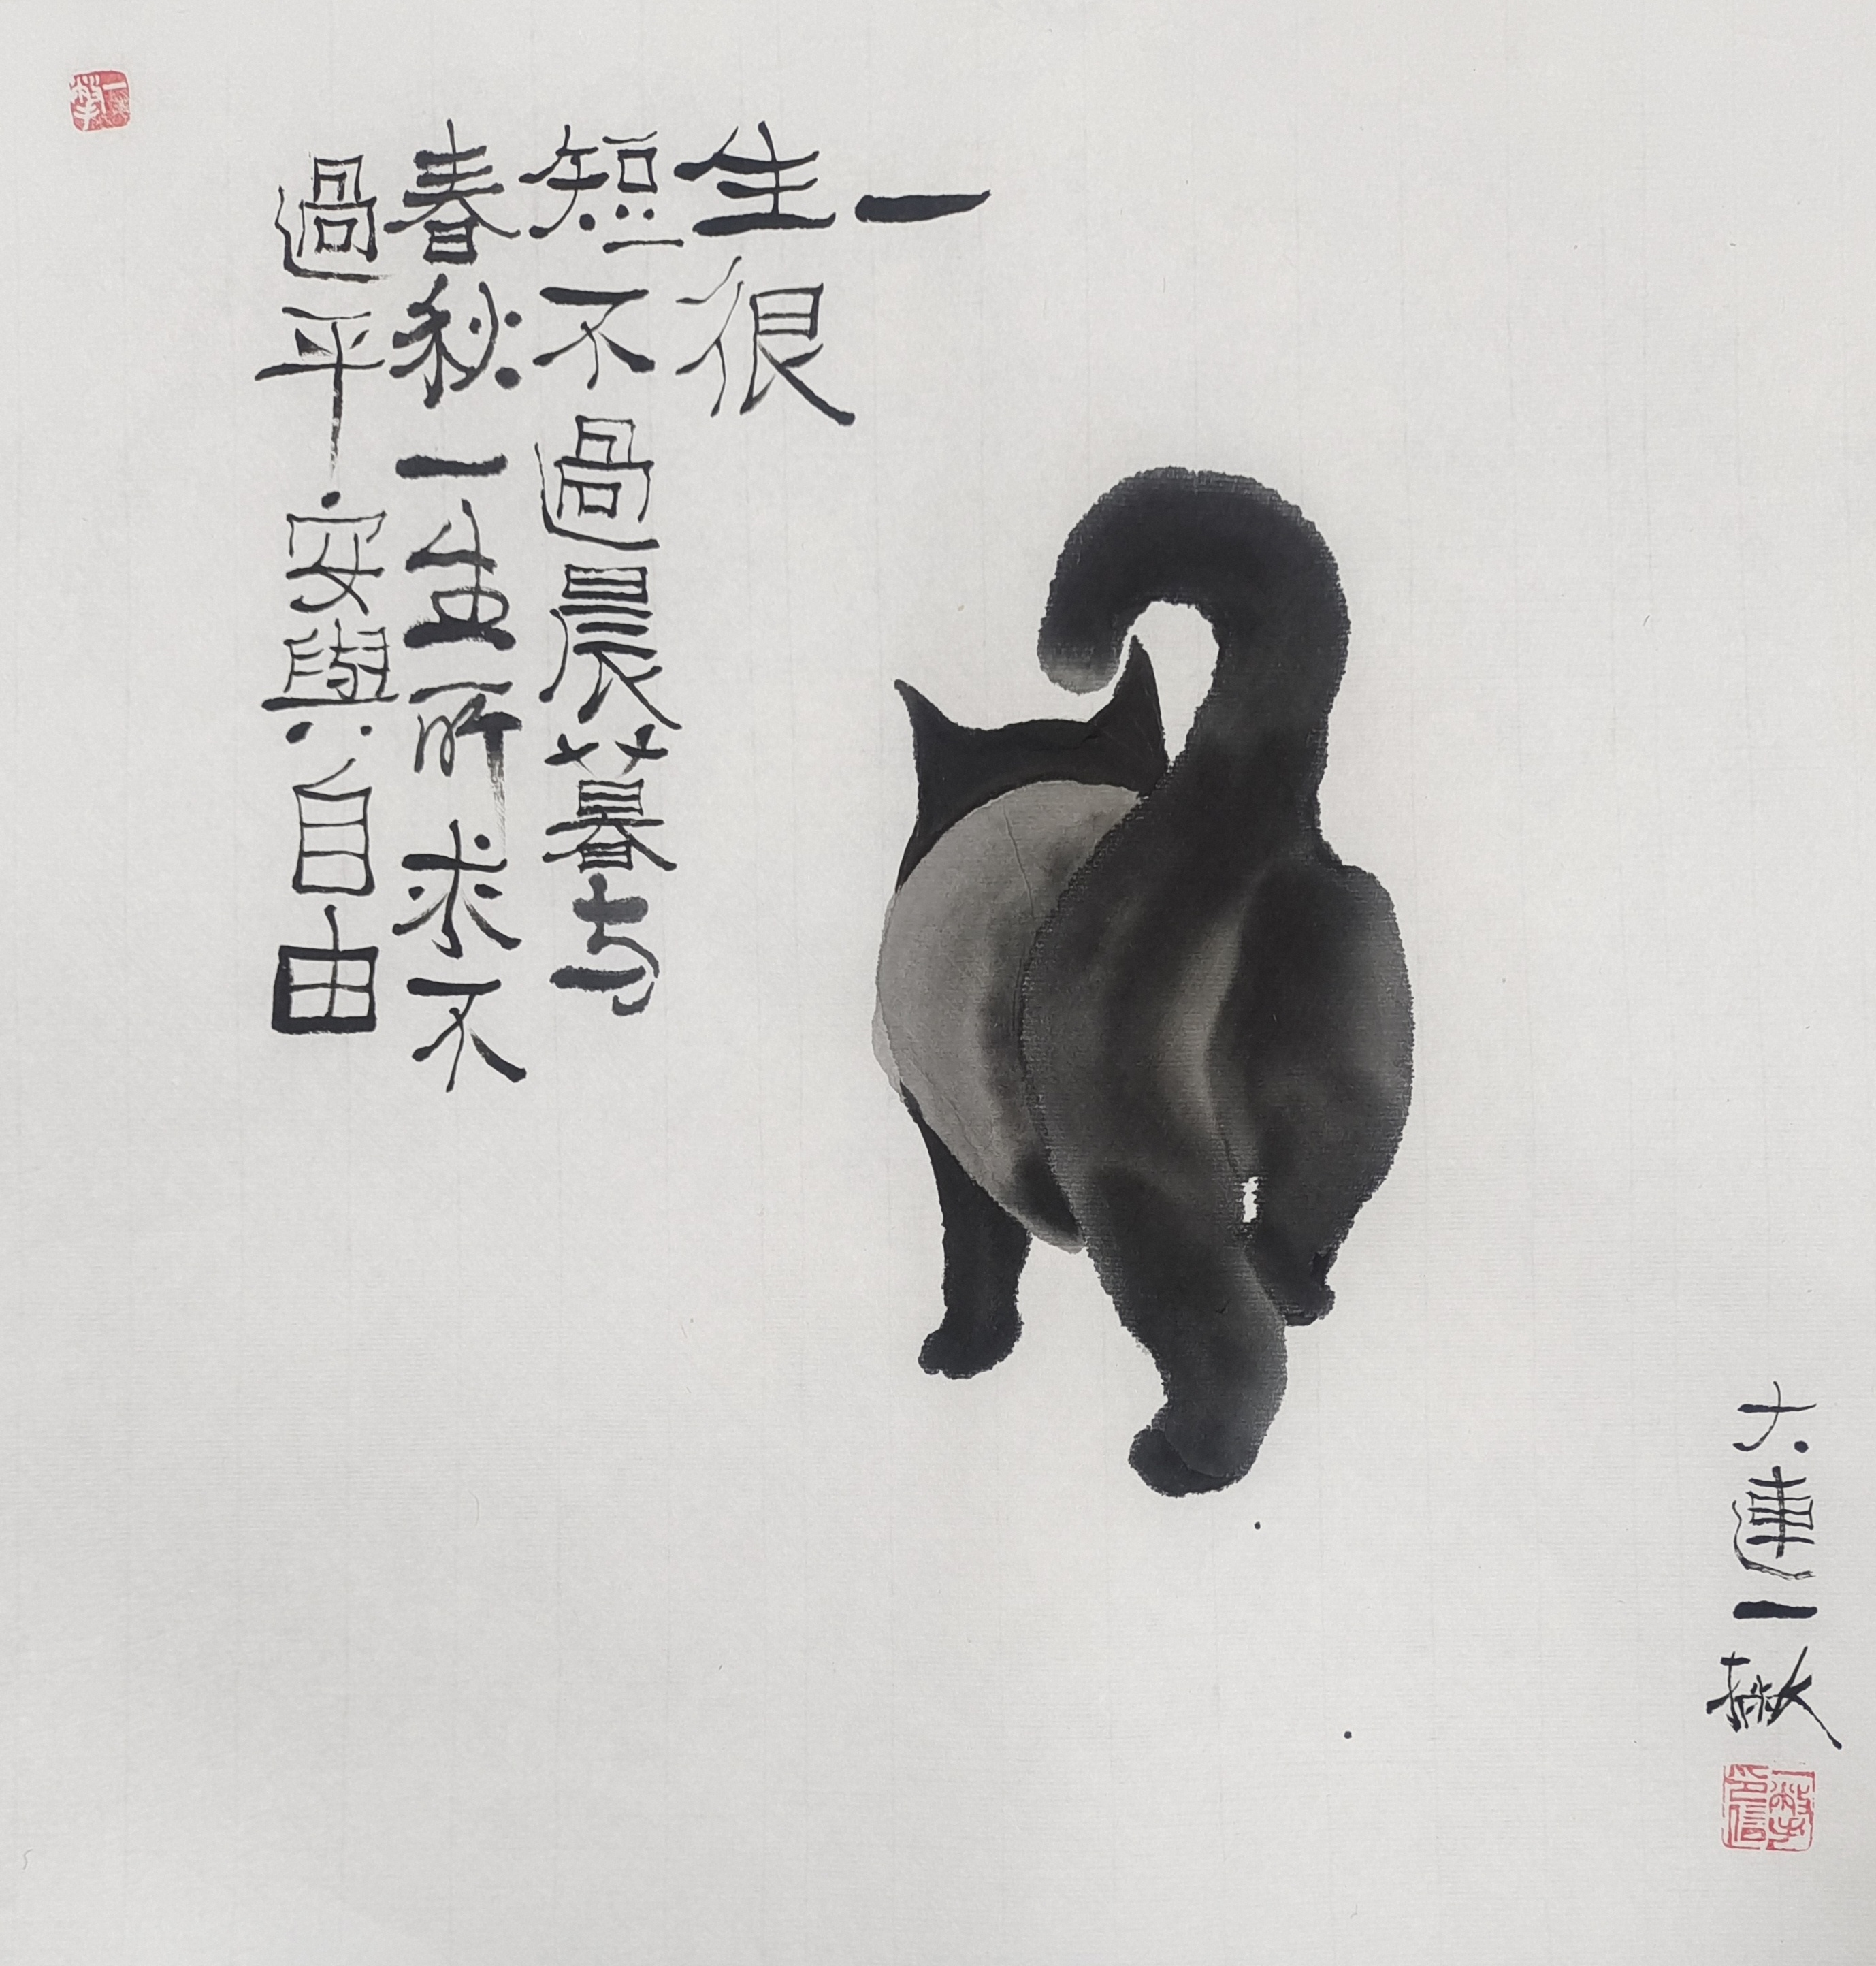 一
生很
短不過晨暮与
春秋一生所求不
過平安與自由
大連一撇
一撇印信